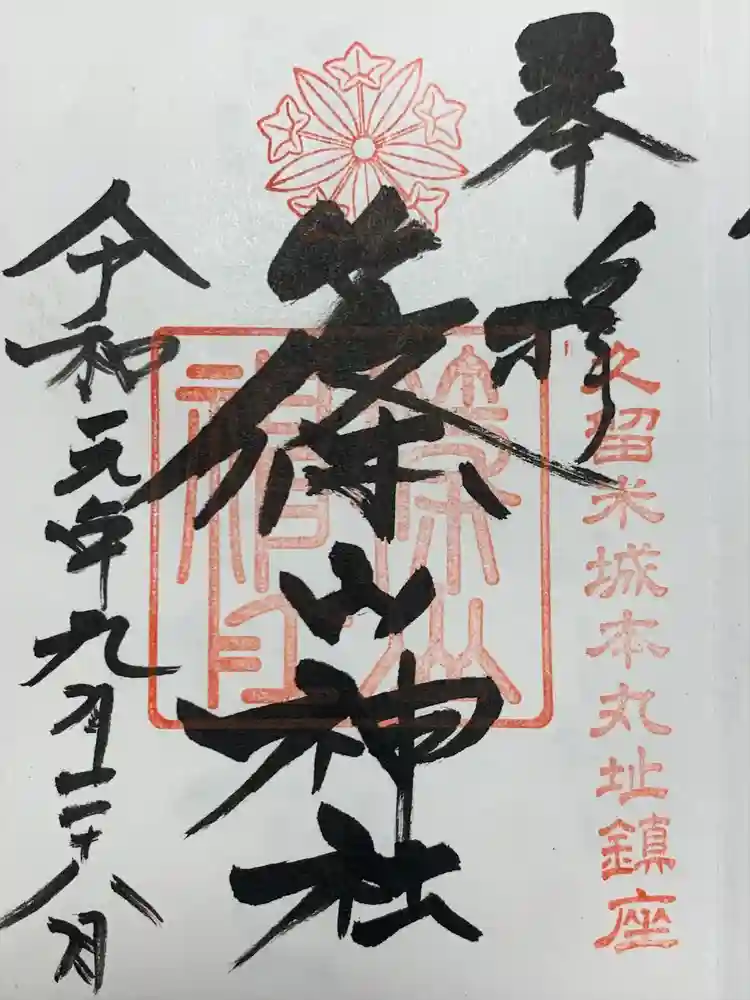 奉拝
久留米城本丸址鎮座
篠山神社
篠山神社
令和元年九月二十八日